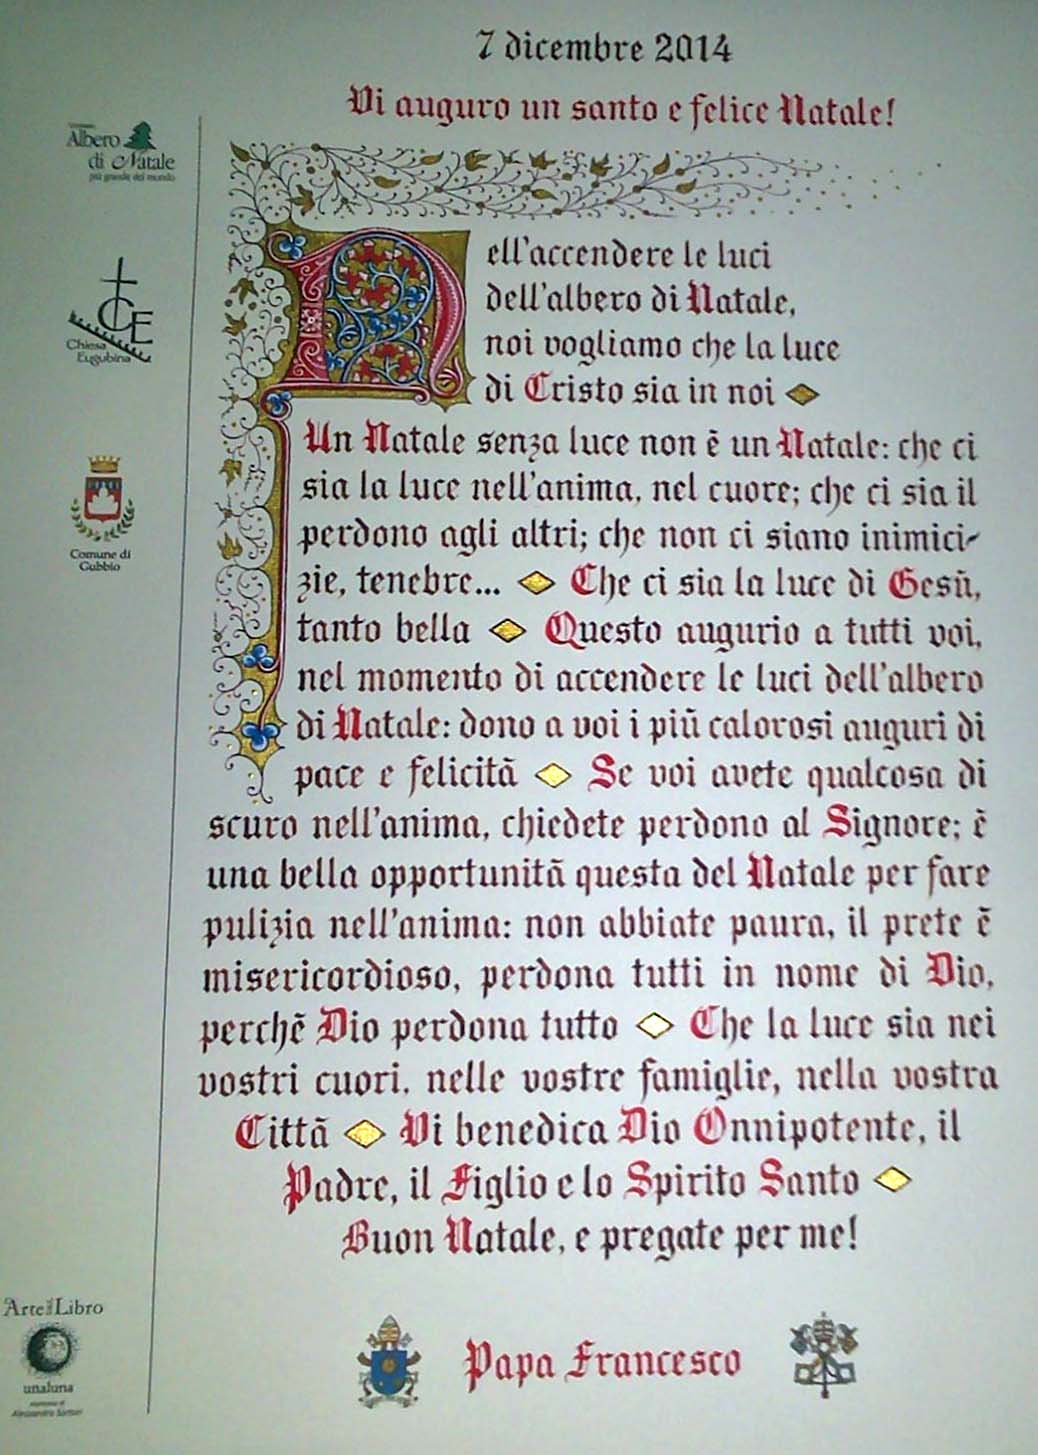 7 dicembre 2014
Vi auguro un santo e felice Natale!
Albero
di Natale
più grande del mondo
CE
Chiesa
Eugubina
Comune di
Gubbio
Nell'accendere le luci
dell'albero di Natale,
noi vogliamo che la luce
di Cristo sia in noi
Un Natale senza luce non è un Natale: che ci
sia la luce nell'anima, nel cuore; che ci sia il
perdono agli altri; che non ci siano inimici-
zie, tenebre... Che ci sia la luce di Gesù,
tanto bella Questo augurio a tutti voi,
nel momento di accendere le luci dell'albero
di Natale: dono a voi i più calorosi auguri di
pace e felicità Se voi avete qualcosa di
scuro nell'anima, chiedete perdono al Signore; è
una bella opportunità questa del Natale per fare
pulizia nell'anima: non abbiate paura, il prete è
misericordioso, perdona tutti in nome di Dio,
perchè Dio perdona tutto Che la luce sia nei
vostri cuori, nelle vostre famiglie, nella vostra
Città Vi benedica Dio Onnipotente, il
Padre, il Figlio e lo Spirito Santo
Buon Natale, e pregate per me!
Arte Libro
unaluna
Alessandro Sartori
Papa Francesco